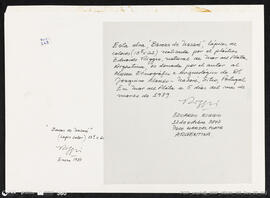 Esta obra "Danzas de Nazaré", lápices de
colores (13 x 22) realizada por el plástico
Eduardo Riggio, natural de Mar del Plata,
Argentina, es donada por el autor al
Museo Etnográfico e Arqueológico do Dr.
Joaquim Manso - Nazaré, Sitio, Portugal.
En Mar del Plata a 5 días del mes de
marzo de 1989
EDUARDO RIGGIO
7600 MAR DEL PLATA
ARGENTINA
"Danzas de Nazaré"
Enero 1989